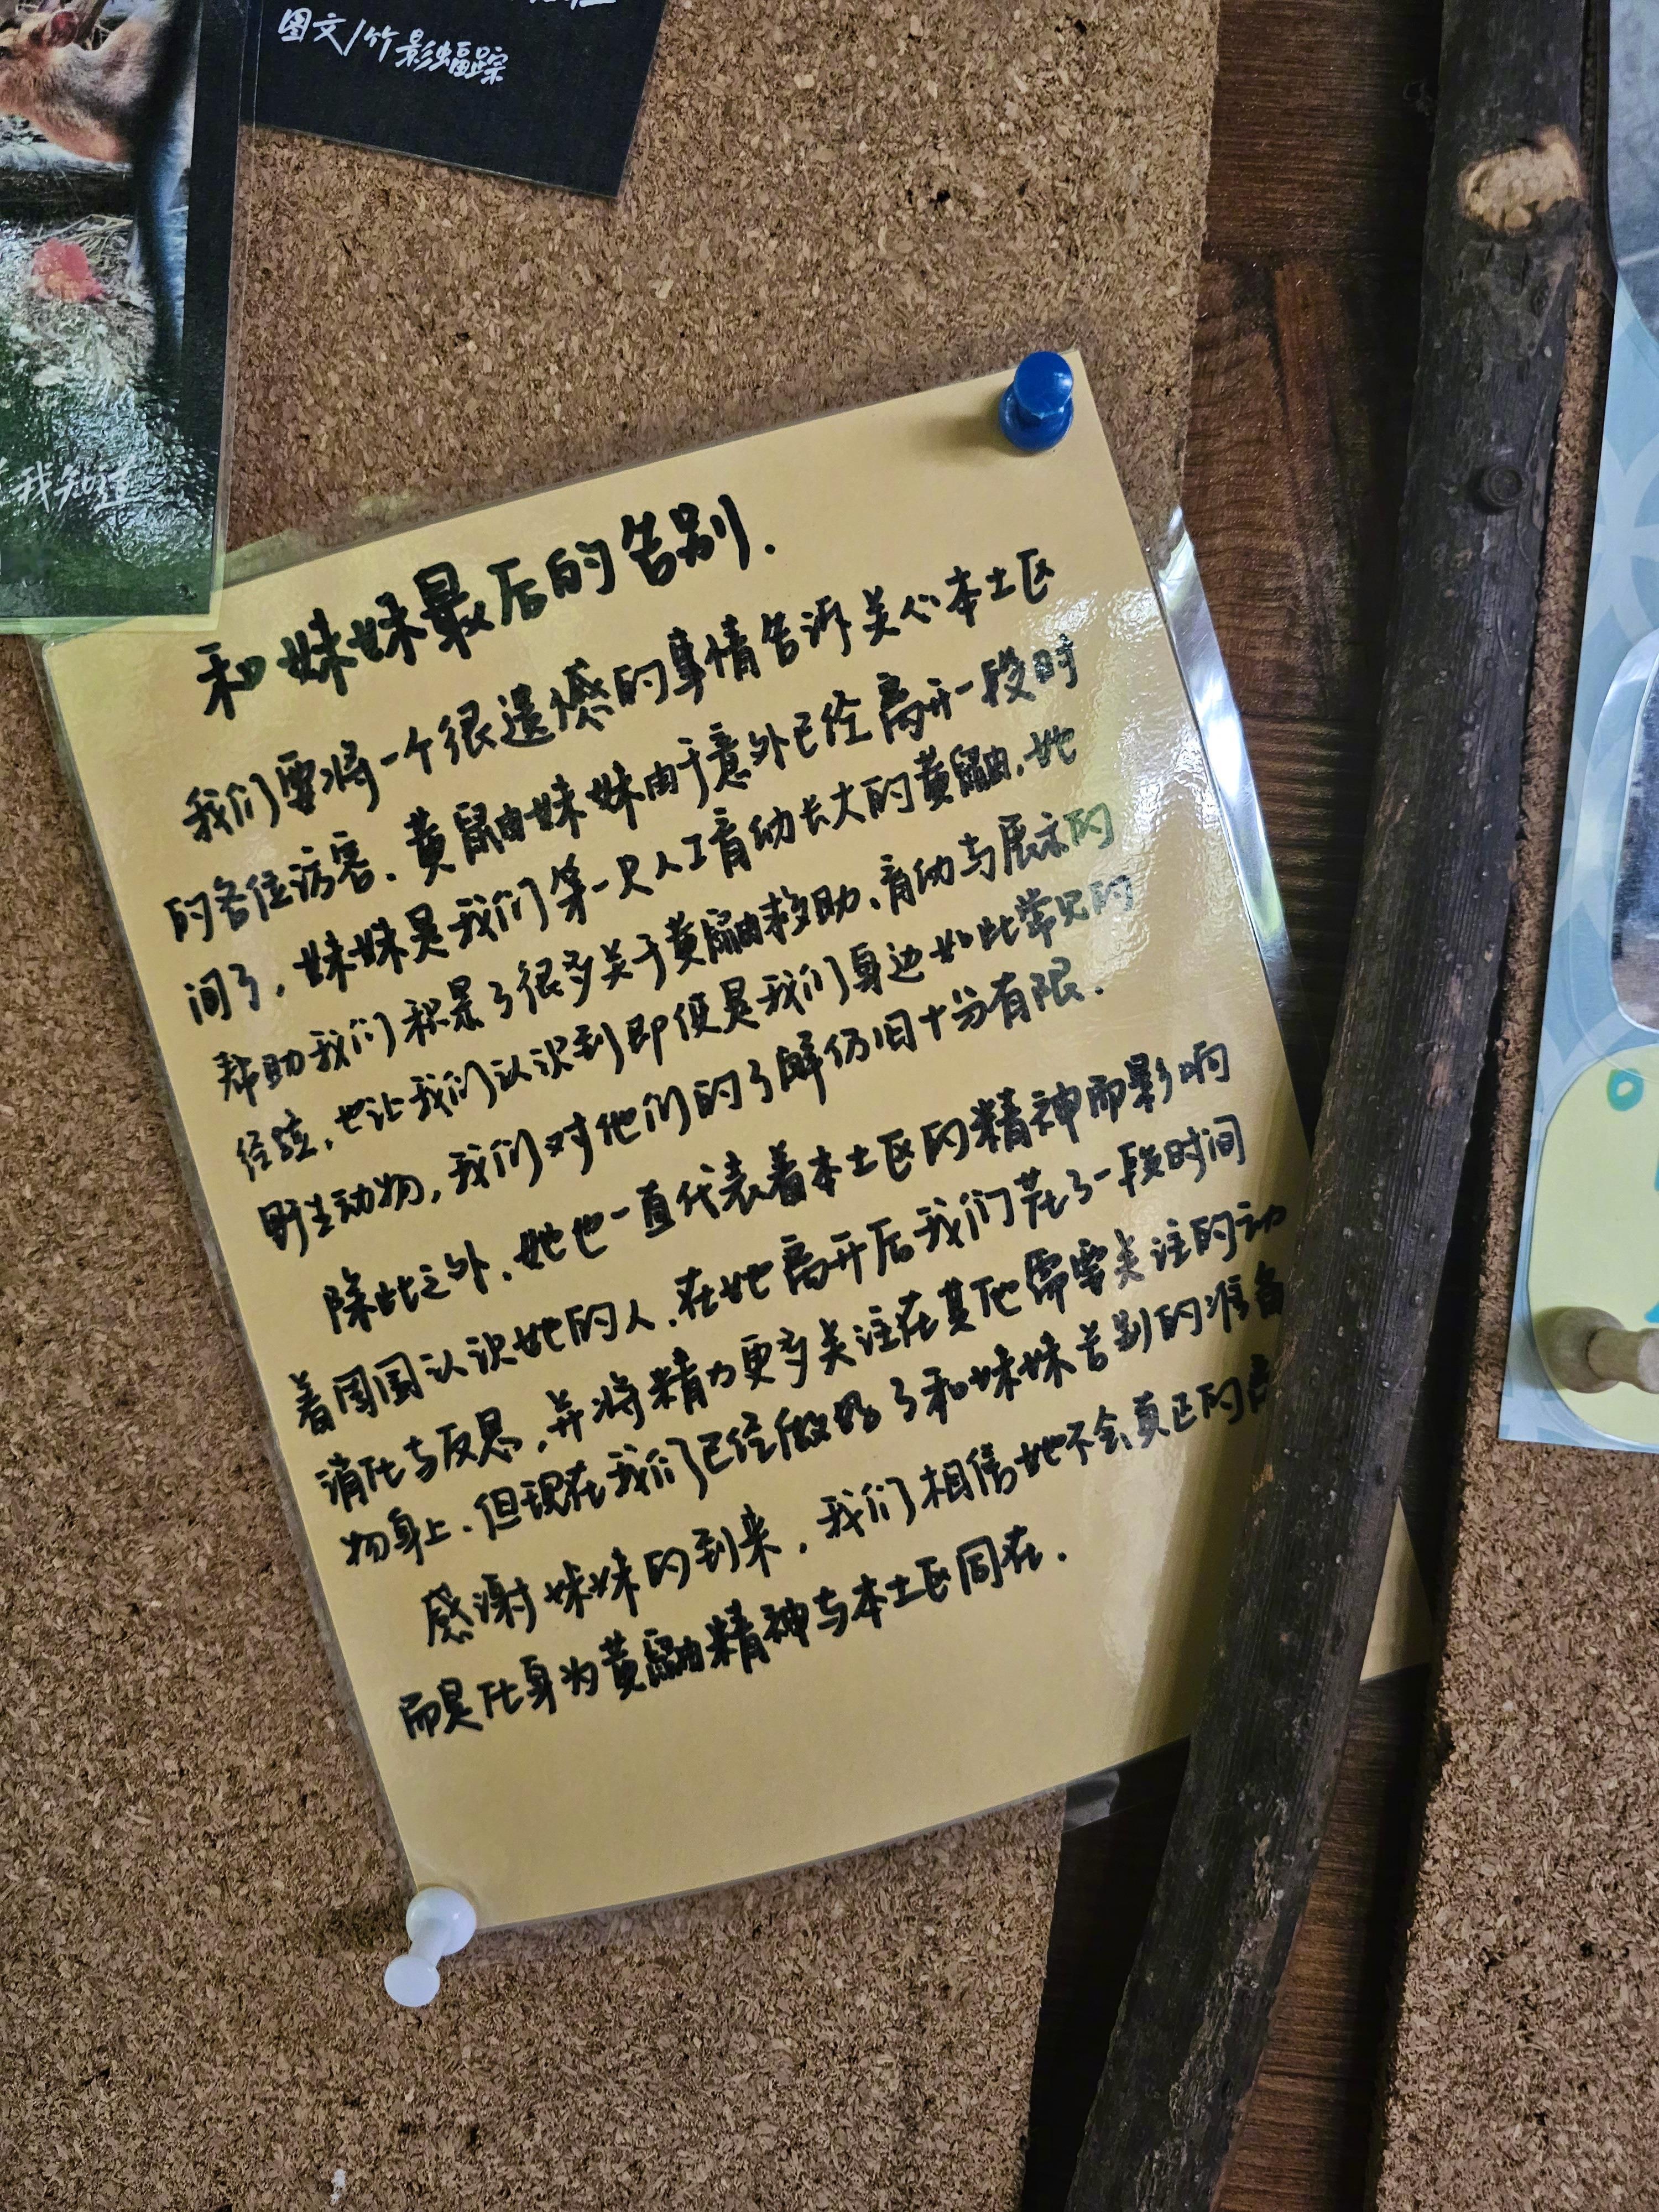 图文/竹影蝠踪
我知道
和妹妹最后的告别.
我们要将一个很遗憾的事情告诉关心本土区
的各位访客、黄鼬妹妹由于意外已经离开一段时
间了，妹妹是我们第一只人工育幼长大的黄鼬，她
帮助我们积累了很多关于黄鼬救助、育幼与展示的
经验，也让我们认识到即使是我们身边如此常见的
野生动物，我们对他们的了解仍旧十分有限.
除此之外、她也一直代表着本土区的精神而影响
着园认识她的人、在她离开后我们花了一段时间
消化与反思，并将精力更多关注在其他需要关注的动
物身上.但现在我们已经做好了和妹妹告别的准备
感谢妹妹的到来，我们相信她不会真正的
而是化身为黄鼬精神与本土区同在.